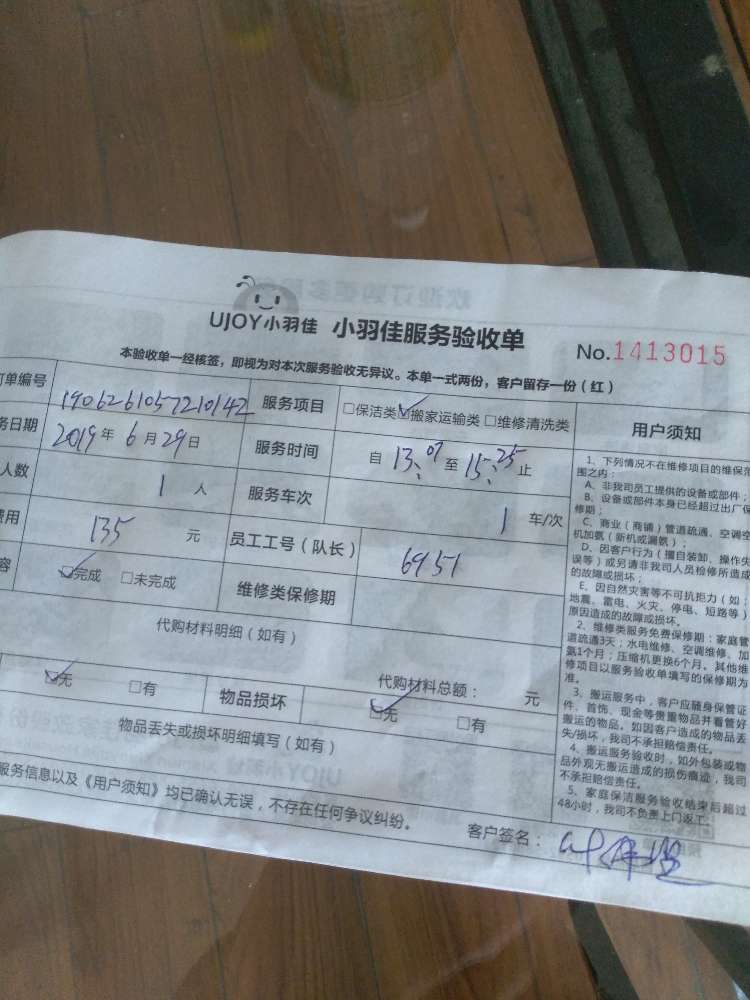 UJOY小羽佳 小羽佳服务验收单
No.1413015
本验收单一经核签，即视为对本次服务验收无异议。本单一式两份，客户留存一份（红）
订单编号 1906261057210142 服务项目 □保洁类 ☑搬家运输类 □维修清洗类
务日期 2019年6月29日 服务时间 自 13:07 至 15:25 止
人数 1 人 服务车次 1 车/次
费用 135 元 员工工号（队长） 6951
容 ☑完成 □未完成 维修类保修期
代购材料明细（如有）
代购材料总额： 元
☑无 □有 物品损坏 ☑无 □有
物品丢失或损坏明细填写（如有）
服务信息以及《用户须知》均已确认无误，不存在任何争议纠纷。
客户签名：
用户须知
1、下列情况不在维修项目的维保范
围之内：
A、非我司员工提供的设备或部件；
B、设备或部件本身已经超过出厂保
修期；
C、商业（商铺）管道疏通、空调空
机加氨（新机或漏氨）；
D、因客户行为（擅自装卸、操作失
误等）或另请非我司人员检修所造成
的故障或损坏；
E、因自然灾害等不可抗拒力（如：
地震、雷电、火灾、停电、短路等）
原因造成的故障或损坏。
2、维修类服务免费保修期：家庭管
道疏通3天；水电维修、空调维修、加
氨1个月；压缩机更换6个月。其他维
修项目以服务验收单填写的保修期为
准。
3、搬运服务中，客户应随身保管证
件、首饰、现金等贵重物品并看管好
搬运的物品。如因客户造成的物品丢
失/损坏，我司不承担赔偿责任。
4、搬运服务验收时，如外包装或物
品外观无搬运造成的损伤痕迹，我司
不承担赔偿责任。
5、家庭保洁服务验收结束后超过
48小时，我司不负责上门返工。